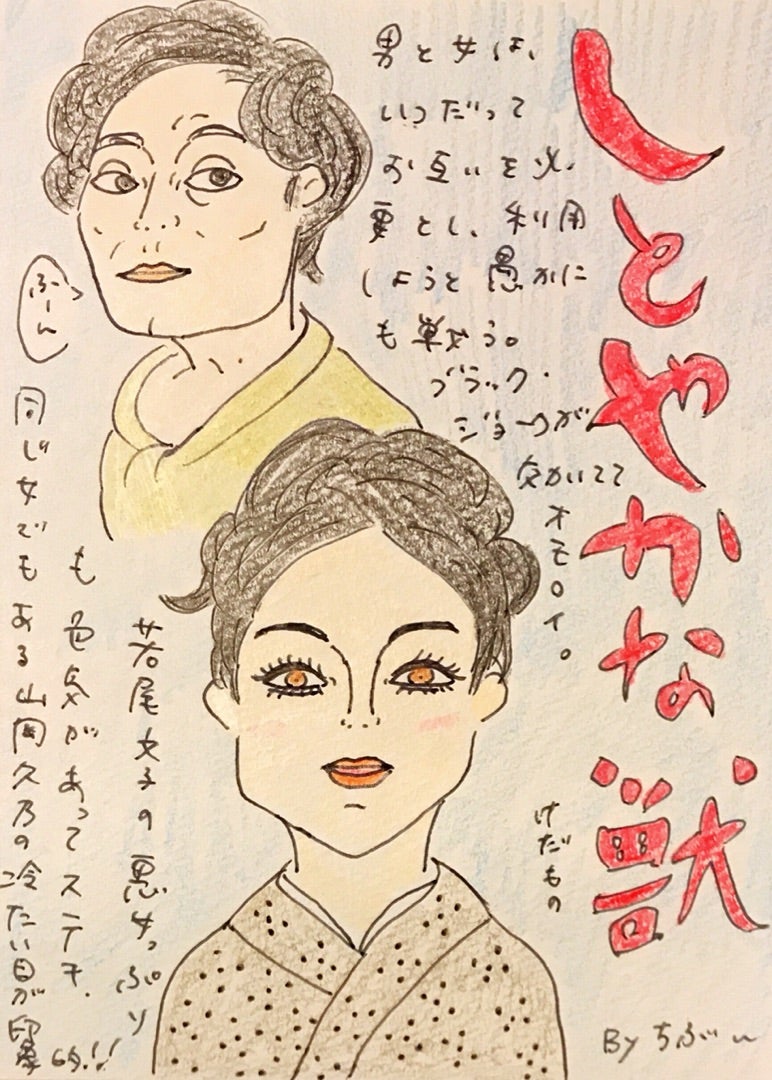 しとやかな獣
けだもの
男と女は、
いつだって
お互いを必
要とし、利用
しようと愚かに
も戦う。
ブラック・
ジョークが
効いてて
オモロイ。
ふーん
若尾文子の悪女っぷり
も色気があってステキ、
同じ女でもある山岡久乃の冷たい目が印象的!!
By ちふ